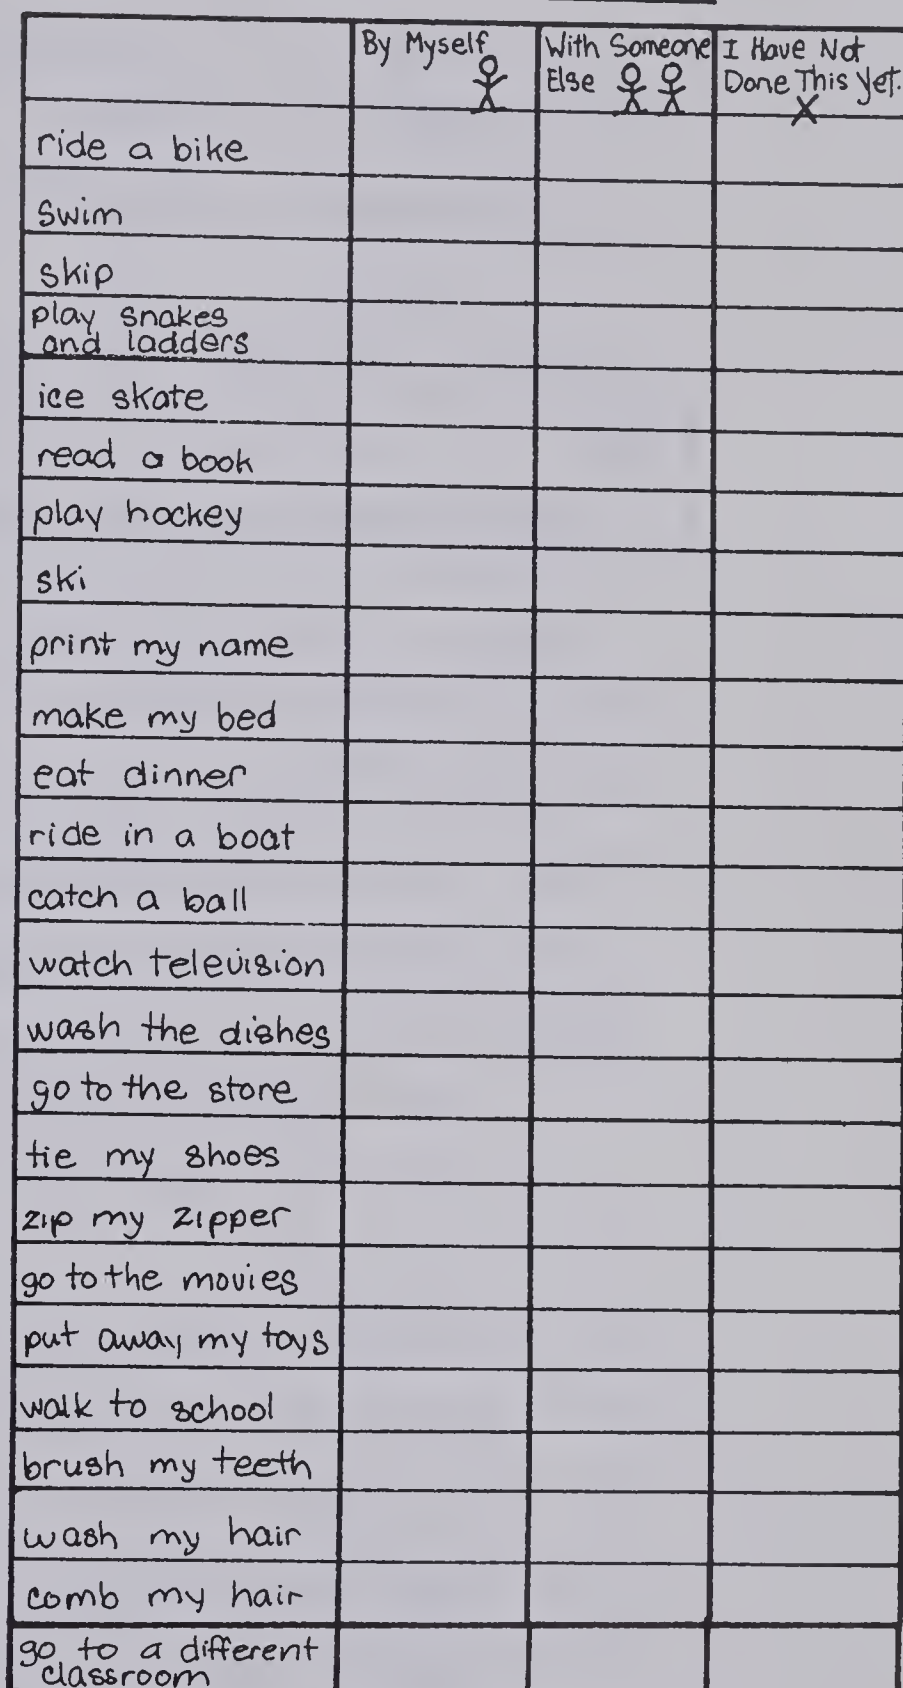 By Myself
With Someone
Else
I Have Not
Done This Yet.
X
ride a bike
swim
skip
play snakes
and ladders
ice skate
read a book
play hockey
ski
print my name
make my bed
eat dinner
ride in a boat
catch a ball
watch television
wash the dishes
go to the store
tie my shoes
zip my zipper
go to the movies
put away my toys
walk to school
brush my teeth
wash my hair
comb my hair
go to a different
classroom